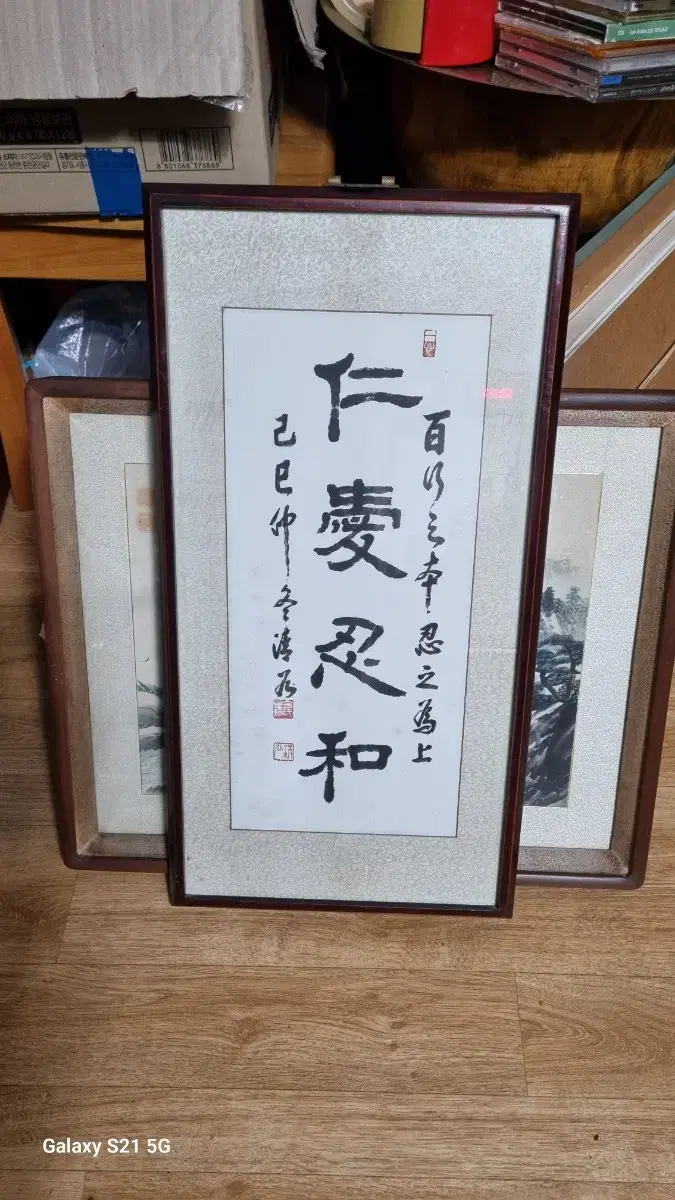 8 801068 376869
百行之本忍之為上
仁愛忍和
己巳仲冬清谷
Galaxy S21 5G